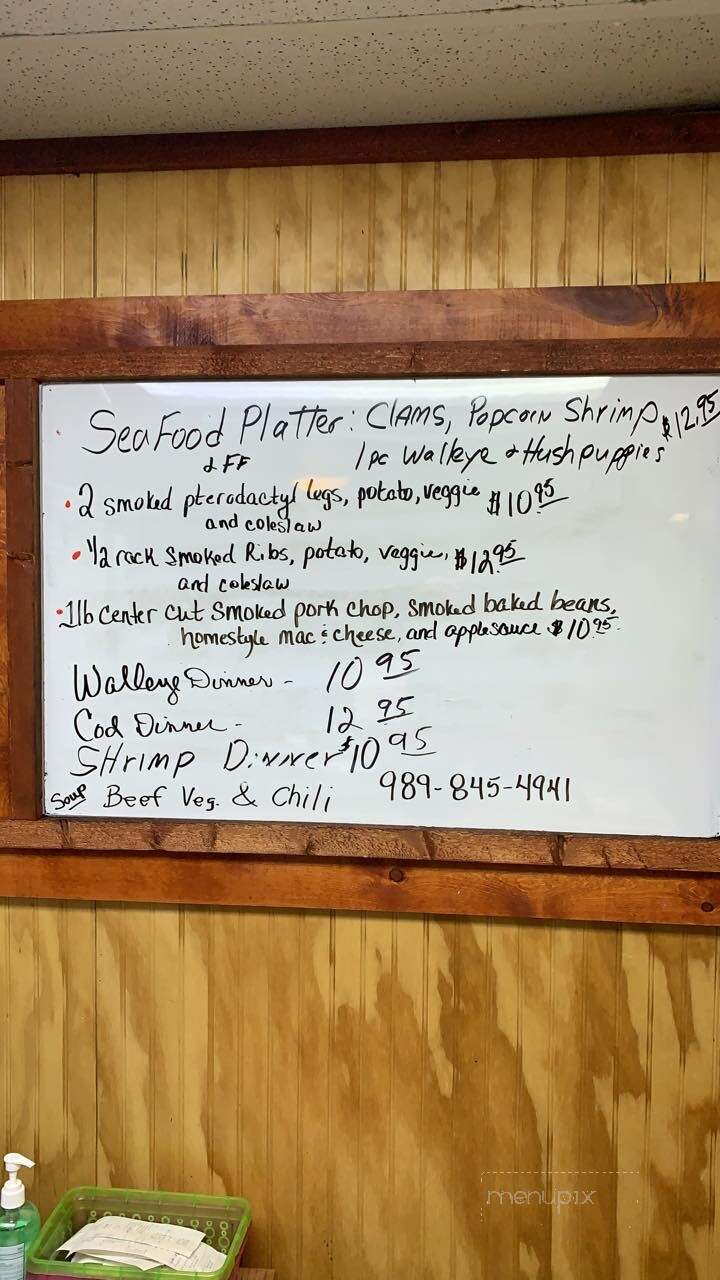 SeaFood Platter: Clams, Popcorn Shrimp $12.95
& FF 1 pc Walleye & Hushpuppies
• 2 smoked pterodactyl legs, potato, veggie $10.95
and coleslaw
• 1/2 rack smoked Ribs, potato, veggie, $12.95
and coleslaw
• 1lb center cut smoked pork chop, smoked baked beans,
homestyle mac & cheese, and applesauce $10.95
Walleye Dinner - 10 95
Cod Dinner - 12 95
SHrimp Dinner $10 95
Soup Beef Veg. & Chili 989-845-4941
menupix